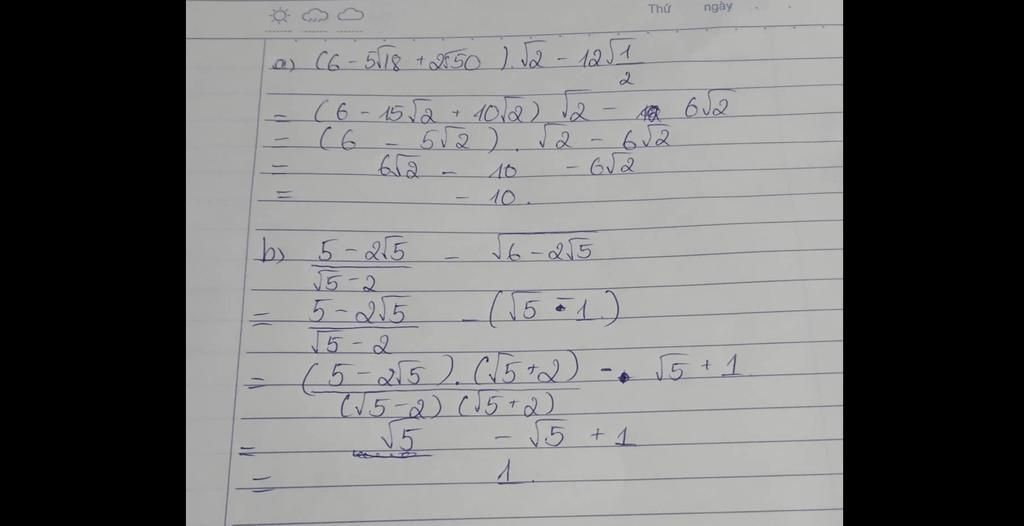 Thứ ngày
a) (6 - 5√18 + 2√50 ).√2 - 12√1/2
= (6 - 15√2 + 10√2) √2 - 6√2
= (6 - 5√2 ) . √2 - 6√2
= 6√2 - 10 - 6√2
= - 10.
b) (5 - 2√5)/(√5 - 2) - √(6 - 2√5)
= (5 - 2√5)/(√5 - 2) - (√5 - 1)
= ((5 - 2√5).(√5 + 2))/((√5 - 2) (√5 + 2)) - √5 + 1
= √5 - √5 + 1
= 1.